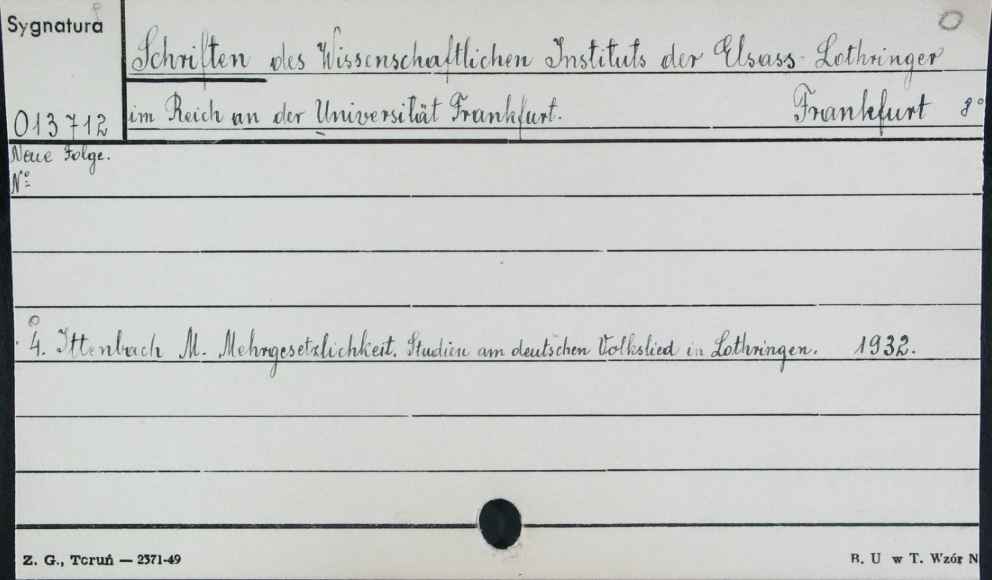 Sygnatura
Schriften des Wissenschaftlichen Instituts der Elsass-Lothringer
013712
im Reich an der Universität Frankfurt. Frankfurt 8°
Neue Folge.
Nº
4. Ittenbach M. Mehrgesetzlichkeit. Studien am deutschen Volkslied in Lothringen. 1932.
Z. G., Toruń — 2371-49
B. U w T. Wzór N